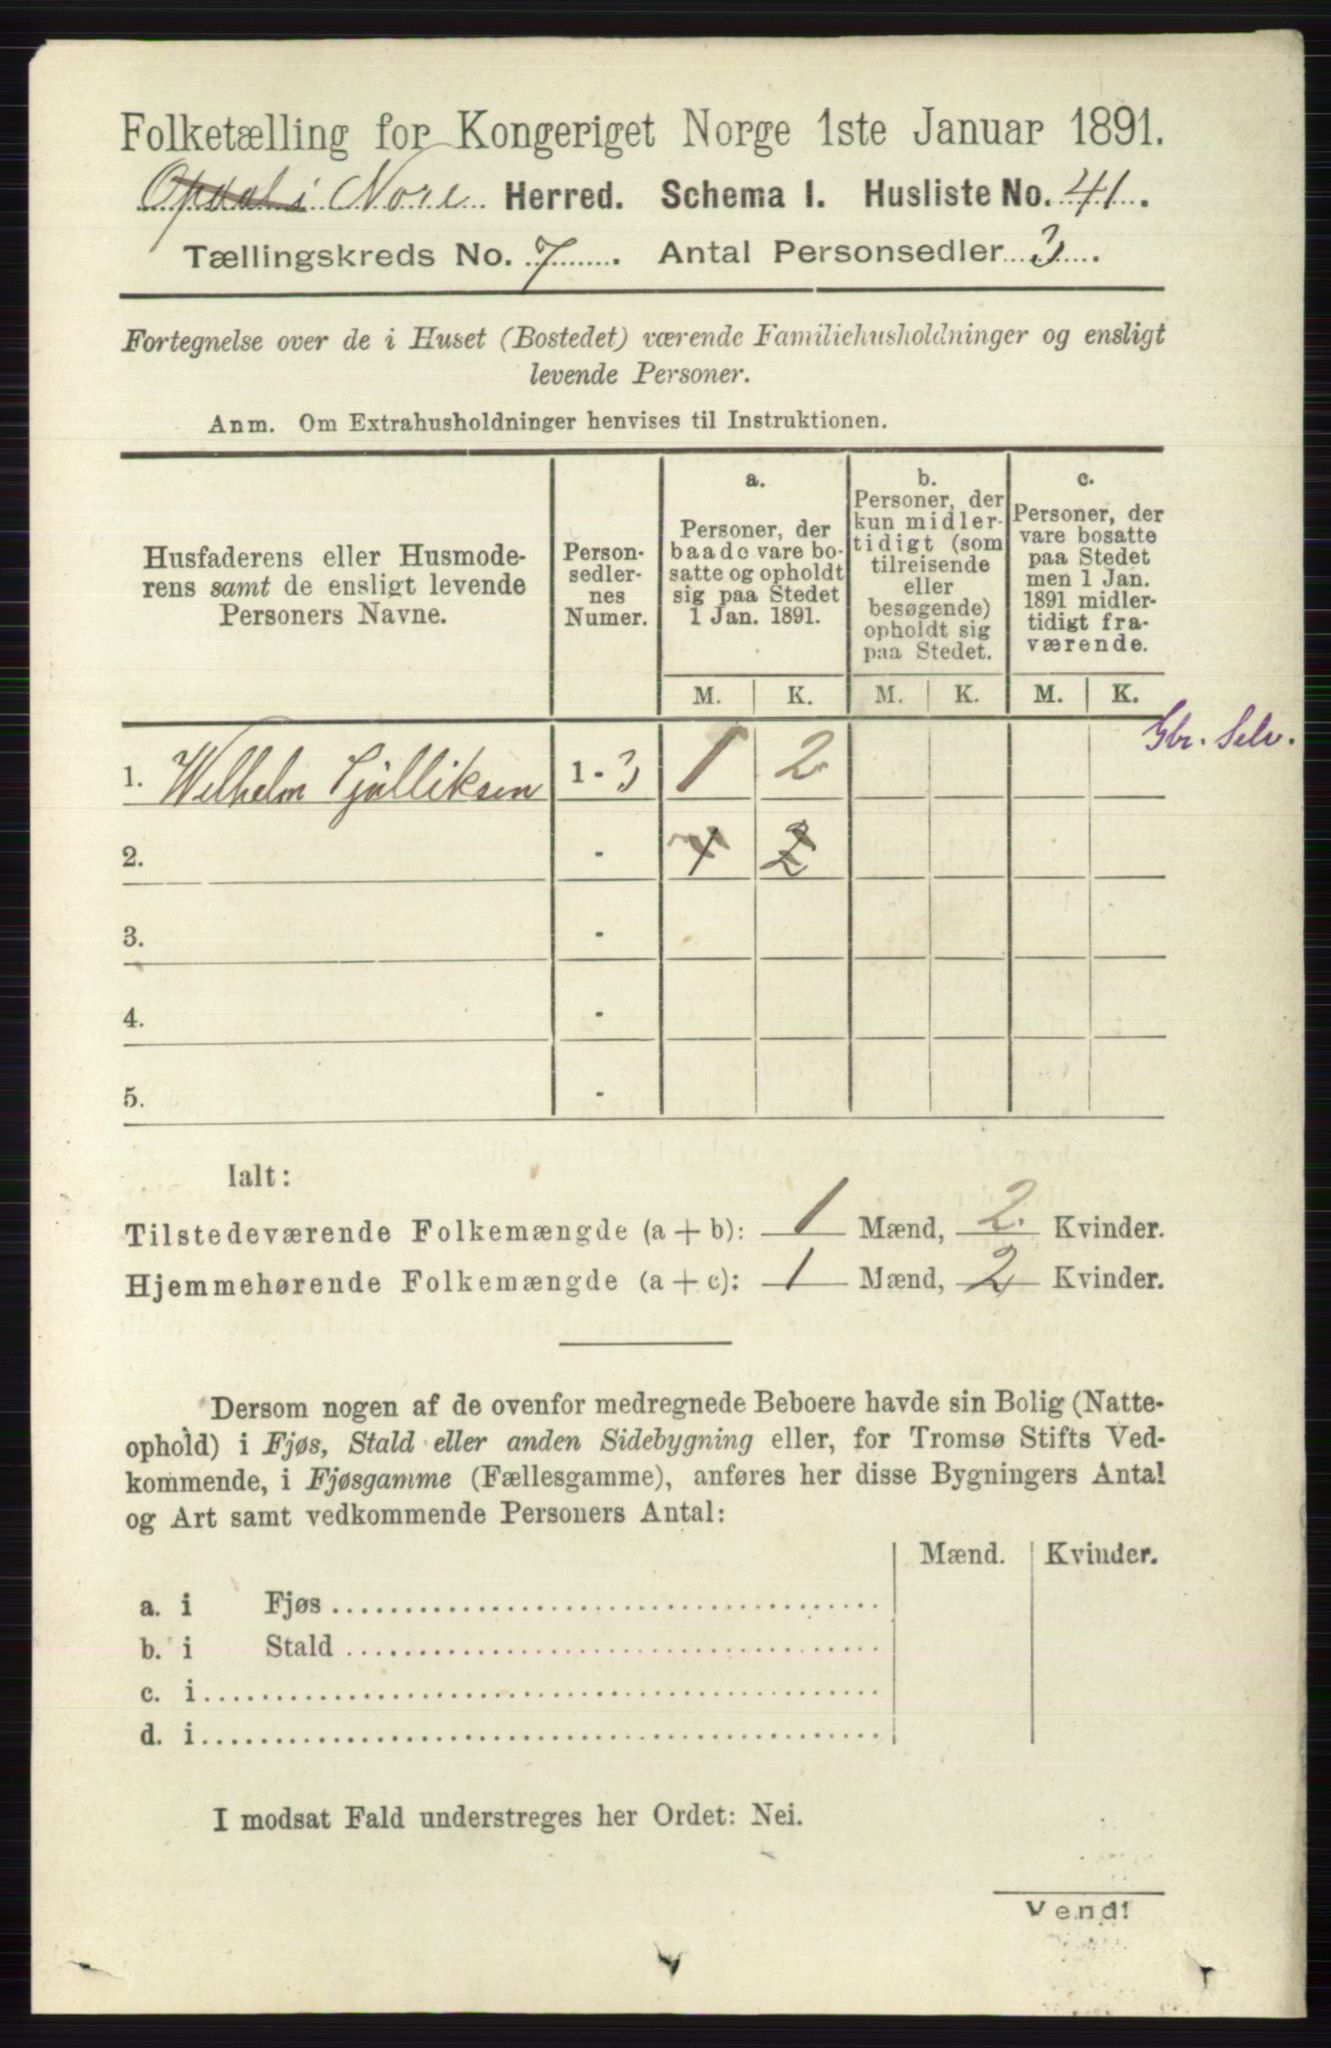 Folketælling for Kongeriget Norge 1ste Januar 1891.
Opdal i Nore Herred. Schema I. Husliste No. 41.
Tællingskreds No. 7. Antal Personsedler 3.
Fortegnelse over de i Huset (Bostedet) værende Familiehusholdninger og ensligt
levende Personer.
Anm. Om Extrahusholdninger henvises til Instruktionen.
Husfaderens eller Husmode-
rens samt de ensligt levende
Personers Navne.
Person-
sedler-
nes
Numer.
a.
Personer, der
baade vare bo-
satte og opholdt
sig paa Stedet
1 Jan. 1891.
b.
Personer, der
kun midler-
tidigt (som
tilreisende
eller
besøgende)
opholdt sig
paa Stedet.
c.
Personer, der
vare bosatte
paa Stedet
men 1 Jan.
1891 midler-
tidigt fra-
værende.
M. K. M. K. M. K.
Gbr. Selv.
1. Wilhelm 1 - 3 1 2
2. - 1 2
3. -
4. -
5. -
Ialt:
Tilstedeværende Folkemængde (a + b): 1 Mænd, 2 Kvinder.
Hjemmehørende Folkemængde (a + c): 1 Mænd, 2 Kvinder.
Dersom nogen af de ovenfor medregnede Beboere havde sin Bolig (Natte-
ophold) i Fjøs, Stald eller anden Sidebygning eller, for Tromsø Stifts Ved-
kommende, i Fjøsgamme (Fællesgamme), anføres her disse Bygningers Antal
og Art samt vedkommende Personers Antal:
Mænd. Kvinder.
a. i Fjøs
b. i Stald
c. i
d. i
I modsat Fald understreges her Ordet: Nei.
Vend!